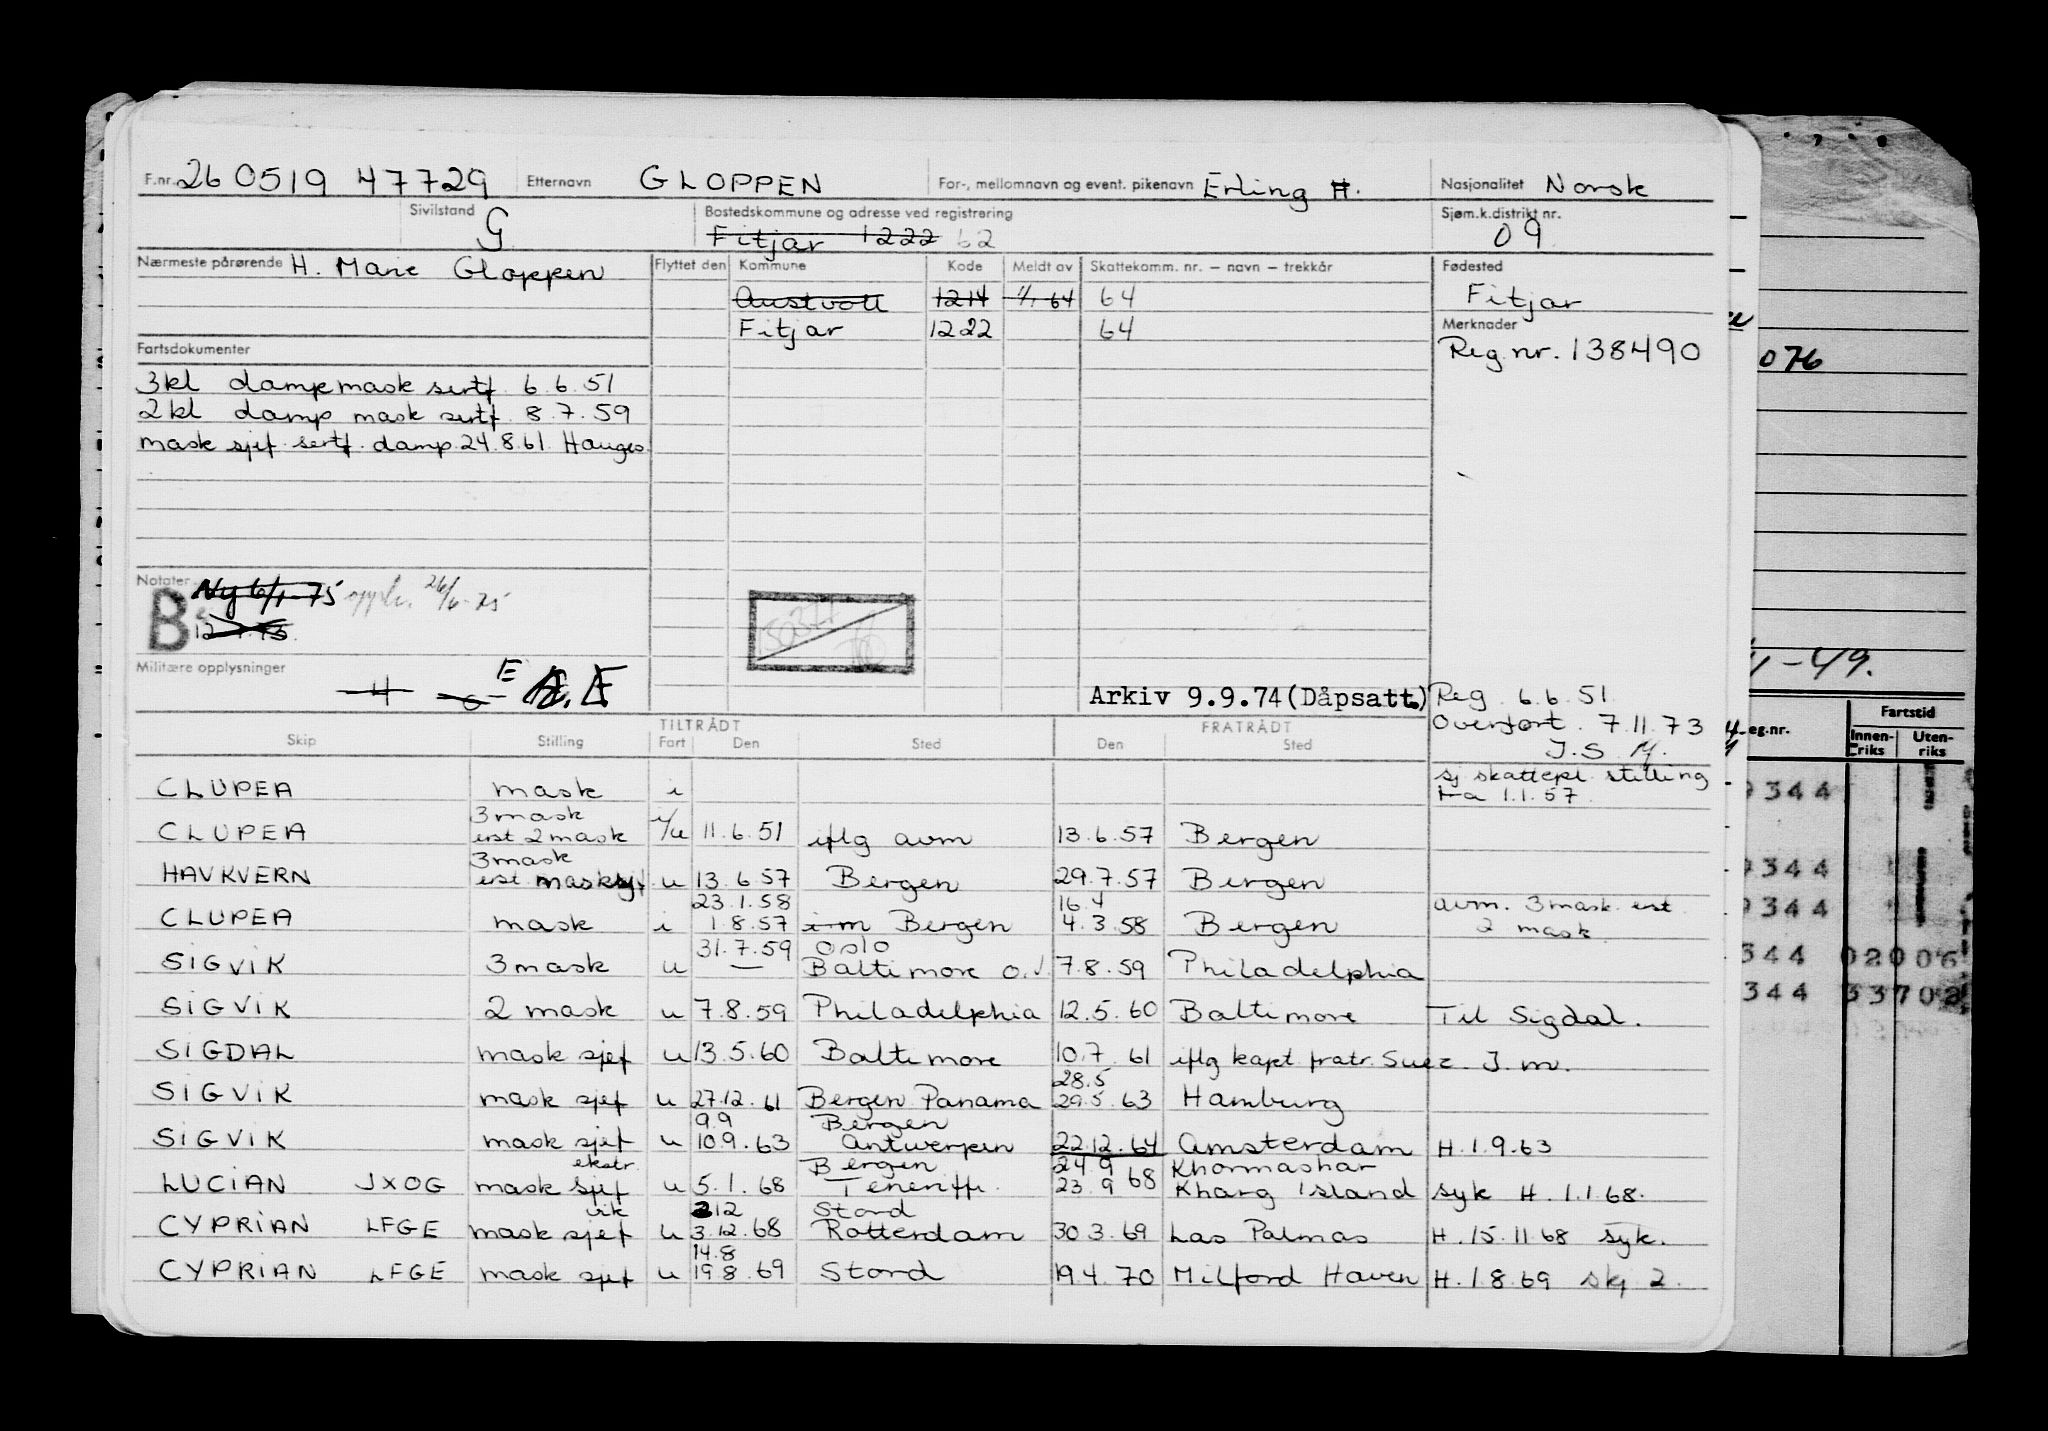 F.nr. 26 0519 47729 Etternavn GLOPPEN For-, mellomnavn og event. pikenavn Erling H. Nasjonalitet Norsk
Sivilstand G Bostedskommune og adresse ved registrering Fitjar 1222 62 Sjøm.k.distrikt nr. 09
Nærmeste pårørende H. Marie Gloppen Flyttet den Kommune Kode Meldt av Skattekomm. nr. – navn – trekkår Fødested
Austvoll 1214 1/1 64 64 Fitjar
Fitjar 1222 64 Merknader
Fartsdokumenter Reg.nr. 138490
076
3kl dampmask sertf. 6.6.51
2kl damp mask sertf 8.7.59
mask sjef sertf. damp 24.8.61 Hauges.
Notater Ny 6/1-75 26/6-75
B
Militære opplysninger 4 E
-49.
Arkiv 9.9.74(Dåpsatt.) Reg. 6.6.51
Overført. 7.11.73
J.S M.
TILTRÅDT FRATRÅDT
Skip Stilling Fart Den Sted Den Sted
eg.nr. Fartstid
Innenriks Utenriks
sj skattepl. stilling
fra 1.1.57
CLUPEA mask i
9344
CLUPEA 3mask erst 2mask i/u 11.6.51 iflg avm 13.6.57 Bergen
HAVKVERN 3mask erst masksj. u 13.6.57 Bergen 29.7.57 Bergen
9344
CLUPEA mask i 23.1.58 1.8.57 i m Bergen 16.4 4.3.58 Bergen avm. 3mask erst 2 mask
9344
SIGVIK 3mask u 31.7.59 — Oslo Baltimore o. 7.8.59 Philadelphia
344 02006
SIGVIK 2 mask u 7.8.59 Philadelphia 12.5.60 Baltimore Til Sigdal.
344 33702
SIGDAL mask sjef u 13.5.60 Baltimore 10.7.61 iflg kapt fratr. Suez. J.m.
SIGVIK mask sjef u 27.12.61 Bergen Panama 28.5 29.5.63 Hamburg
SIGVIK mask sjef u 9.9 10.9.63 Bergen Antwerpen 22.12.64 Amsterdam H.1.9.63
LUCIAN JXOG ekstr. mask sjef u 5.1.68 Bergen Teneriffe. 24.9 23.9 68 Khormashar Kharg Island syk H.1.1.68.
CYPRIAN LFGE vik mask sjef u 212 3.12.68 Stord Rotterdam 30.3.69 Las Palmas H.15.11.68 syk.
CYPRIAN LFGE mask sjef u 14.8 19.8.69 Stord 19.4.70 Milford Haven H.1.8.69 skj 2.